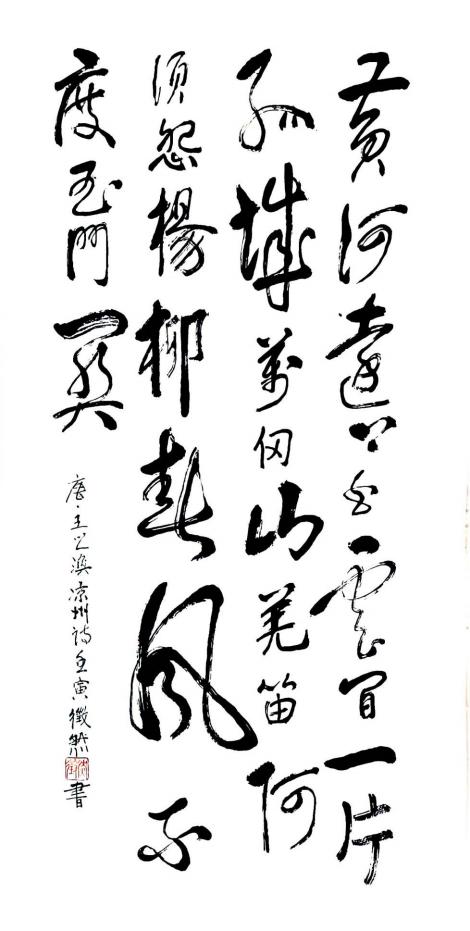 黄河遠上白雲間一片
孤城萬仞山羌笛何
須怨楊柳春風不
度玉門關
唐·王之渙凉州詩壬寅徵然書